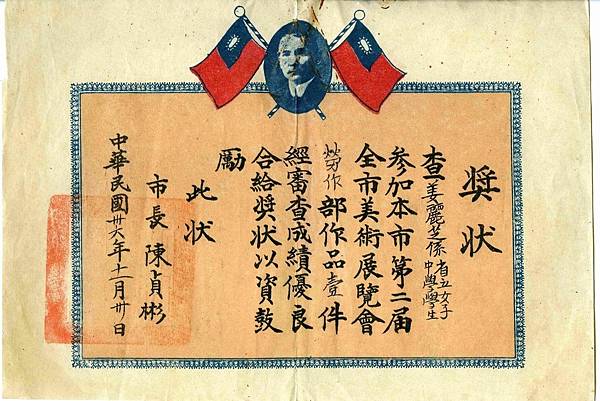 奨状
查姜麗芝係省立女子中學學生
參加本市第二届
全市美術展覽會
勞作部作品壹件
經審查成績優良
合給奨状以資鼓
勵
此状
市長 陳貞彬
中華民國卅六年十一月卅日